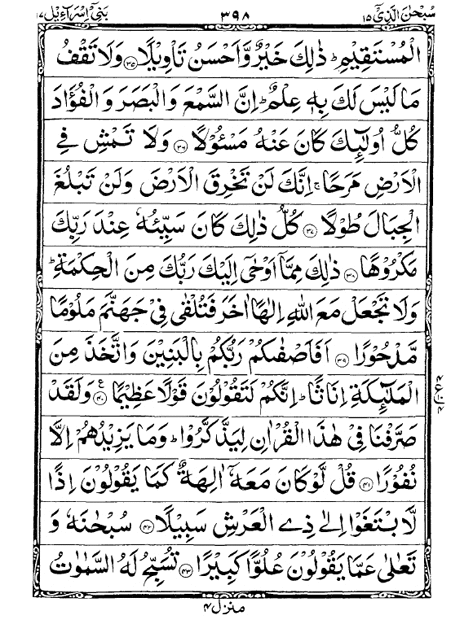 سُبْحٰنَ الَّذِیْۤ ١٥ ٣٩٨ بَنِیْۤ اِسْرَآءِیْل ١٧
الْمُسْتَقِیْمِ ؕ ذٰلِكَ خَیْرٌ وَّ اَحْسَنُ تَاْوِیْلًا ﴿٣٥﴾ وَ لَا تَقْفُ
مَا لَیْسَ لَكَ بِهٖ عِلْمٌ ؕ اِنَّ السَّمْعَ وَ الْبَصَرَ وَ الْفُؤَادَ
كُلُّ اُولٰٓىِٕكَ كَانَ عَنْهُ مَسْـُٔوْلًا ﴿٣٦﴾ وَ لَا تَمْشِ فِی
الْاَرْضِ مَرَحًا ۚ اِنَّكَ لَنْ تَخْرِقَ الْاَرْضَ وَ لَنْ تَبْلُغَ
الْجِبَالَ طُوْلًا ﴿٣٧﴾ كُلُّ ذٰلِكَ كَانَ سَیِّئُهٗ عِنْدَ رَبِّكَ
مَكْرُوْهًا ﴿٣٨﴾ ذٰلِكَ مِمَّاۤ اَوْحٰۤی اِلَیْكَ رَبُّكَ مِنَ الْحِكْمَةِ ؕ
وَ لَا تَجْعَلْ مَعَ اللّٰهِ اِلٰهًا اٰخَرَ فَتُلْقٰی فِیْ جَهَنَّمَ مَلُوْمًا
مَّدْحُوْرًا ﴿٣٩﴾ اَفَاَصْفٰىكُمْ رَبُّكُمْ بِالْبَنِیْنَ وَ اتَّخَذَ مِنَ
الْمَلٰٓىِٕكَةِ اِنَاثًا ؕ اِنَّكُمْ لَتَقُوْلُوْنَ قَوْلًا عَظِیْمًا ﴿٤٠﴾ وَ لَقَدْ
صَرَّفْنَا فِیْ هٰذَا الْقُرْاٰنِ لِیَذَّكَّرُوْا ؕ وَ مَا یَزِیْدُهُمْ اِلَّا
نُفُوْرًا ﴿٤١﴾ قُلْ لَّوْ كَانَ مَعَهٗۤ اٰلِهَةٌ كَمَا یَقُوْلُوْنَ اِذًا
لَّابْتَغَوْا اِلٰی ذِی الْعَرْشِ سَبِیْلًا ﴿٤٢﴾ سُبْحٰنَهٗ وَ
تَعٰلٰی عَمَّا یَقُوْلُوْنَ عُلُوًّا كَبِیْرًا ﴿٤٣﴾ تُسَبِّحُ لَهُ السَّمٰوٰتُ
منزل ٤